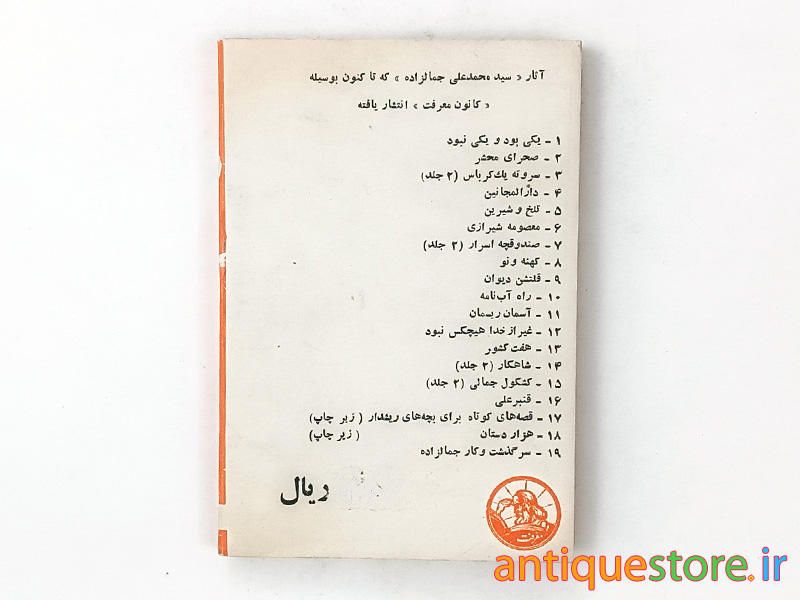 آثار « سید محمدعلی جمالزاده » که تا کنون بوسیله
« کانون معرفت » انتشار یافته
۱ - یکی بود و یکی نبود
۲ - صحرای محشر
۳ - سروته یك کرباس (۲ جلد)
۴ - دارالمجانین
۵ - تلخ و شیرین
۶ - معصومه شیرازی
۷ - صندوقچه اسرار (۲ جلد)
۸ - کهنه و نو
۹ - قلتشن دیوان
۱۰ - راه آب‌نامه
۱۱ - آسمان ریسمان
۱۲ - غیر از خدا هیچکس نبود
۱۳ - هفت کشور
۱۴ - شاهکار (۲ جلد)
۱۵ - کشکول جمالی (۲ جلد)
۱۶ - قنبرعلی
۱۷ - قصه‌های کوتاه برای بچه‌های ریشدار ( زیر چاپ)
۱۸ - هزار دستان ( زیر چاپ)
۱۹ - سرگذشت و کار جمالزاده
ریال
معرفت
antiquestore.ir